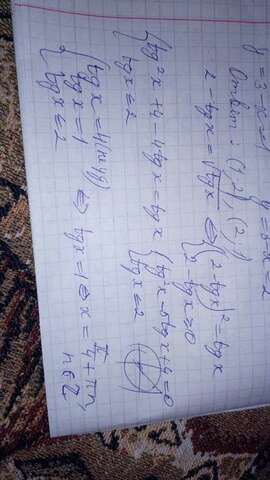 y = 3 - x = 1 y = 3 - x = 2
Ответ: (1, 2), (2, 1)
2 - tgx = √tgx ⇔ { (2 - tgx)² = tgx
2 - tgx ≥ 0
{ tg²x + 4 - 4tgx = tgx { tg²x - 5tgx + 4 = 0
tgx ≤ 2 tgx ≤ 2
{ tgx = 4
tgx = 1 ⇔ tgx = 1 ⇔ x = π/4 + πn,
tgx ≤ 2 n ∈ Z